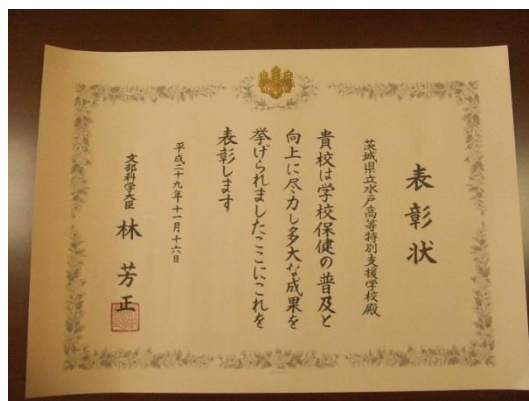 表彰状
茨城県立水戸高等特別支援学校殿
貴校は学校保健の普及と
向上に尽力し多大な成果を
挙げられましたここにこれを
表彰します
平成二十九年十一月十六日
文部科学大臣 林芳正